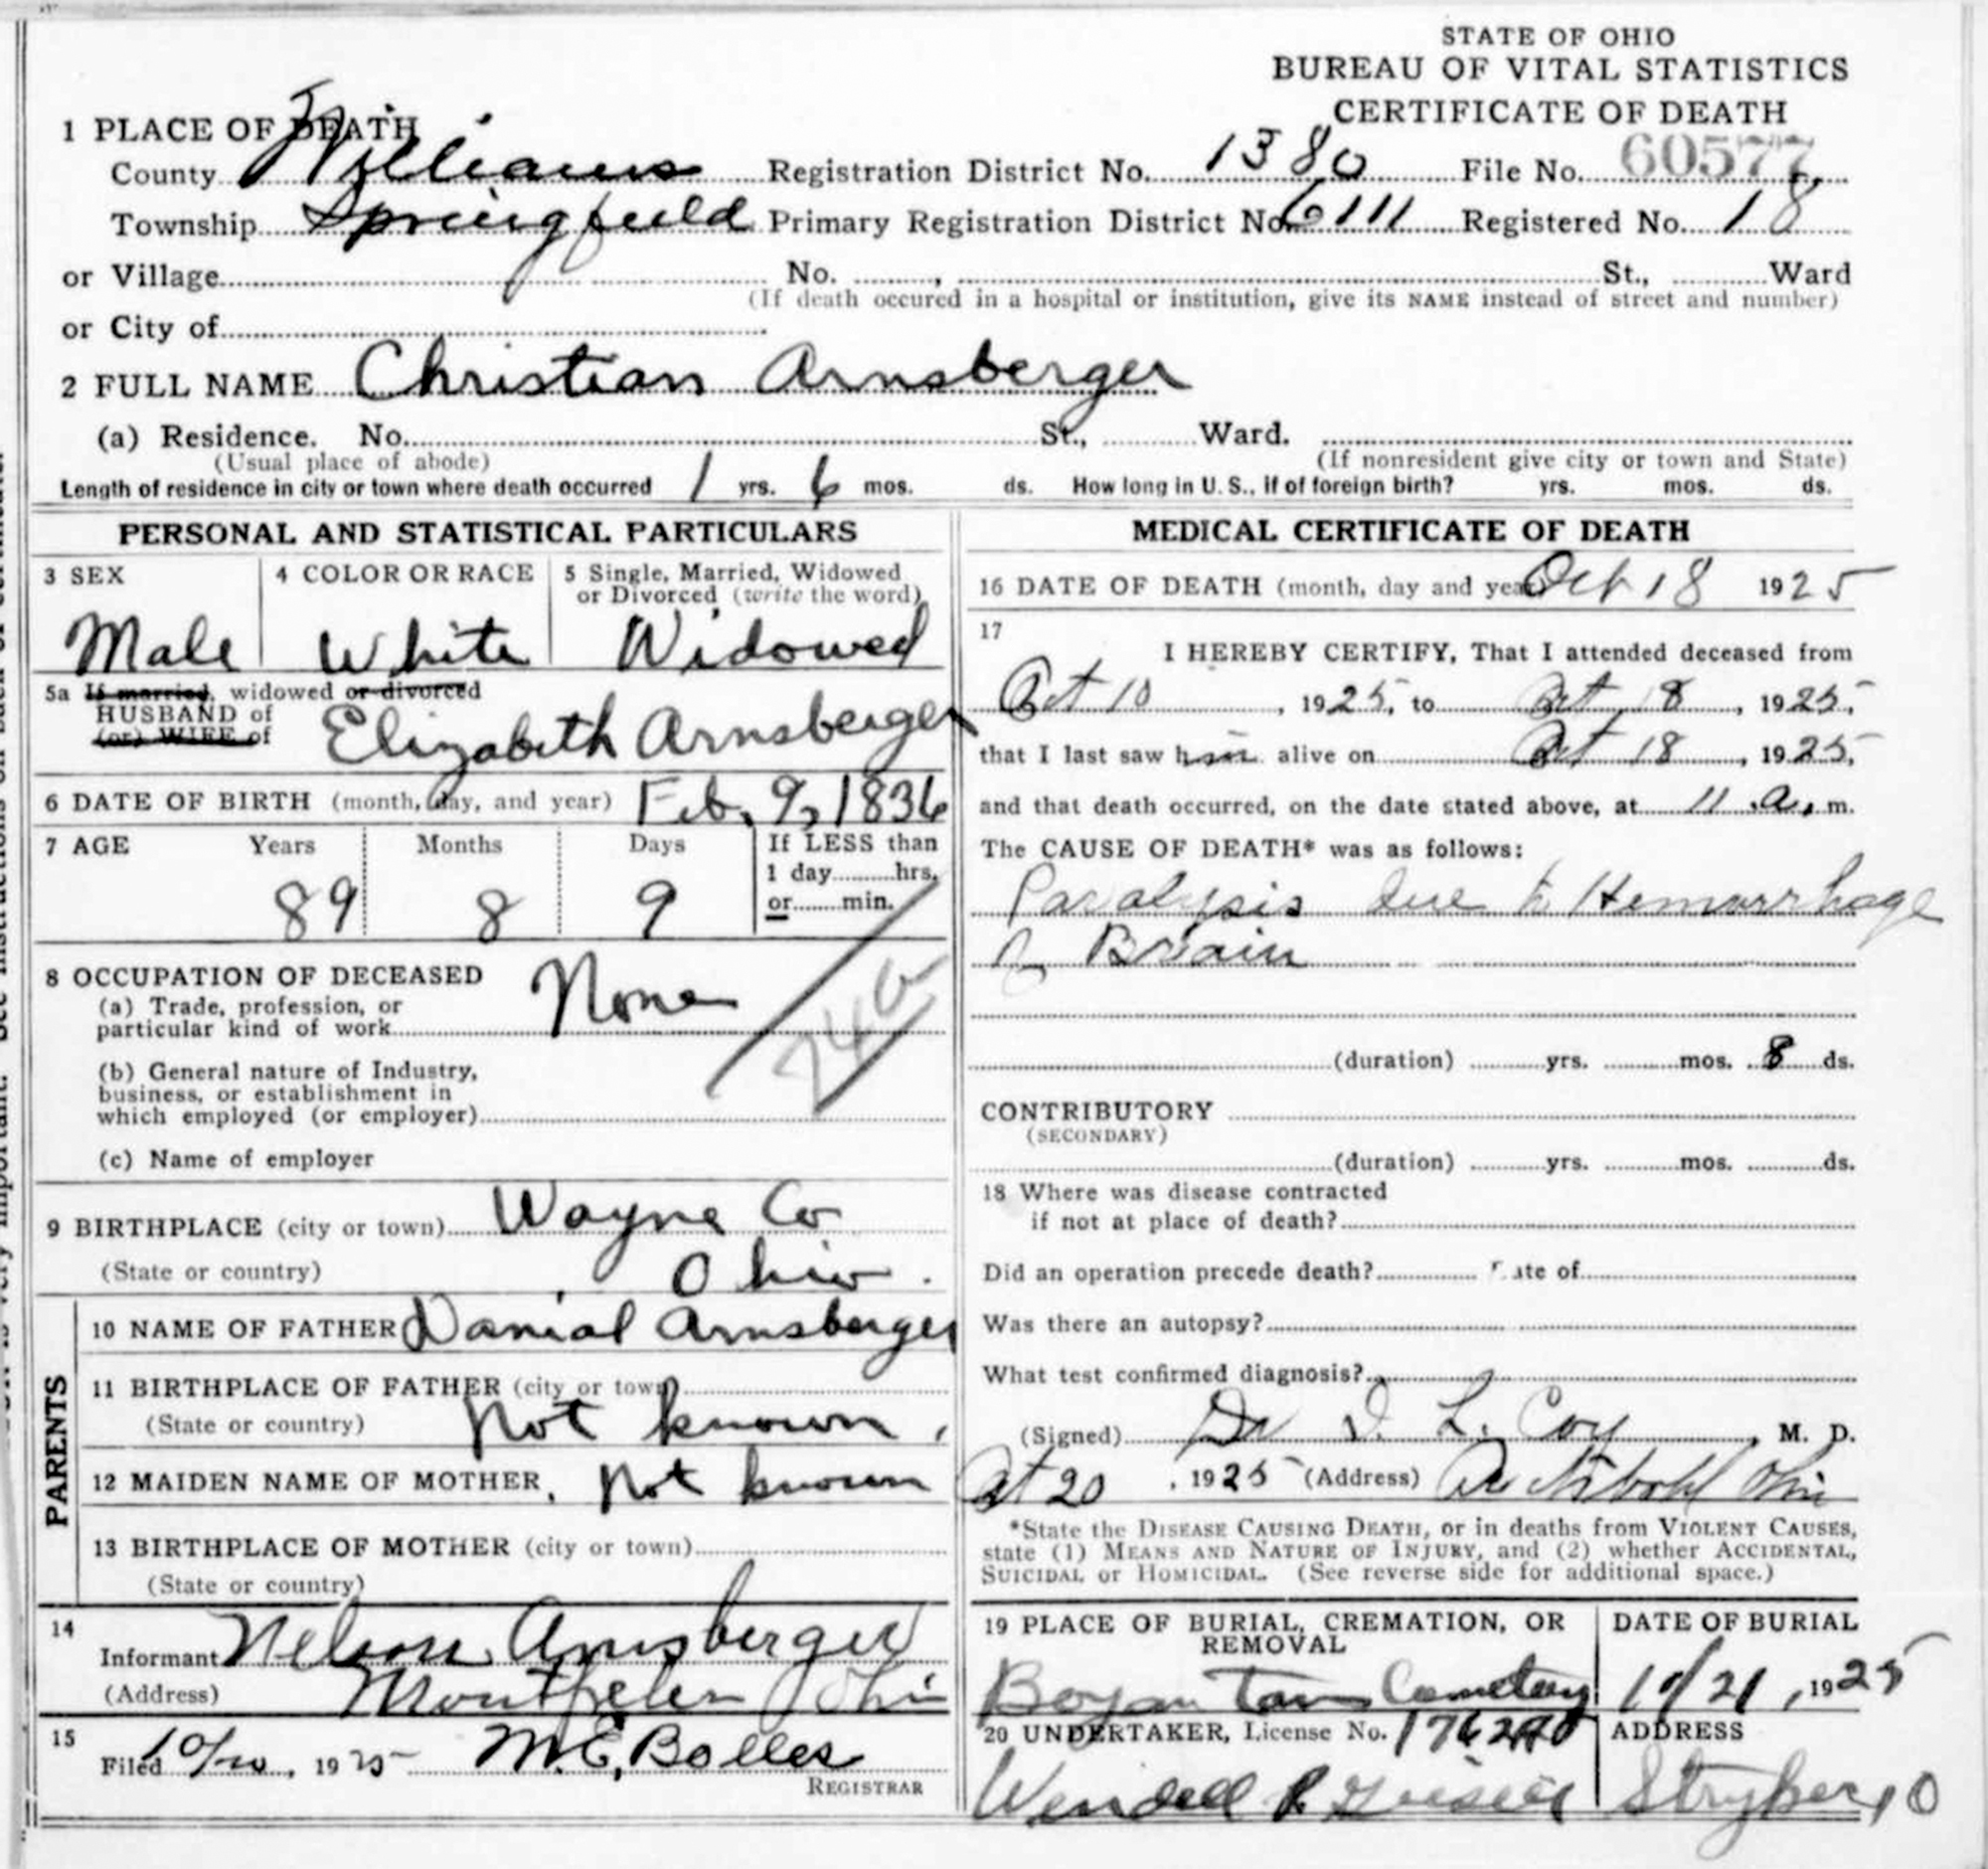 STATE OF OHIO
BUREAU OF VITAL STATISTICS
CERTIFICATE OF DEATH
1 PLACE OF DEATH
County Williams Registration District No. 1380 File No. 60577
Township Springfield Primary Registration District No. 6111 Registered No. 18
or Village No. , St., Ward
(If death occured in a hospital or institution, give its NAME instead of street and number)
or City of
2 FULL NAME Christian Arnsberger
(a) Residence. No. St., Ward.
(Usual place of abode) (If nonresident give city or town and State)
Length of residence in city or town where death occurred 1 yrs. 6 mos. ds. How long in U. S., if of foreign birth? yrs. mos. ds.
PERSONAL AND STATISTICAL PARTICULARS
3 SEX 4 COLOR OR RACE 5 Single, Married, Widowed
or Divorced (write the word)
Male White Widowed
5a If married, widowed or divorced
HUSBAND of
(or) WIFE of Elizabeth Arnsberger
6 DATE OF BIRTH (month, day, and year) Feb. 9, 1836
7 AGE Years Months Days If LESS than
1 day hrs.
or min.
89 8 9
8 OCCUPATION OF DECEASED
(a) Trade, profession, or
particular kind of work None
(b) General nature of Industry,
business, or establishment in
which employed (or employer)
(c) Name of employer
9 BIRTHPLACE (city or town) Wayne Co
(State or country) Ohio.
PARENTS
10 NAME OF FATHER Danial Arnsberger
11 BIRTHPLACE OF FATHER (city or town)
(State or country) Not known,
12 MAIDEN NAME OF MOTHER, Not known
13 BIRTHPLACE OF MOTHER (city or town)
(State or country)
14
Informant Nelson Arnsberger
(Address) Montpelier Ohio
15
Filed 10/20, 1925 M. E, Bolles
REGISTRAR
MEDICAL CERTIFICATE OF DEATH
16 DATE OF DEATH (month, day and year) Oct 18 1925
17
I HEREBY CERTIFY, That I attended deceased from
Oct 10, 1925, to Oct 18, 1925,
that I last saw him alive on Oct 18, 1925,
and that death occurred, on the date stated above, at 11 a. m.
The CAUSE OF DEATH* was as follows:
Paralysis due to Hemorrhage
of Brain
(duration) yrs. mos. 8 ds.
CONTRIBUTORY
(SECONDARY)
(duration) yrs. mos. ds.
18 Where was disease contracted
if not at place of death?
Did an operation precede death? Date of
Was there an autopsy?
What test confirmed diagnosis?
(Signed) Dr L. Coy, M. D.
Oct 20, 1925 (Address) Archbold Ohio
*State the DISEASE CAUSING DEATH, or in deaths from VIOLENT CAUSES,
state (1) MEANS AND NATURE OF INJURY, and (2) whether ACCIDENTAL,
SUICIDAL or HOMICIDAL. (See reverse side for additional space.)
19 PLACE OF BURIAL, CREMATION, OR
REMOVAL
DATE OF BURIAL
Cemetery 10/21, 1925
20 UNDERTAKER, License No. ADDRESS
Wendell Stryker, O